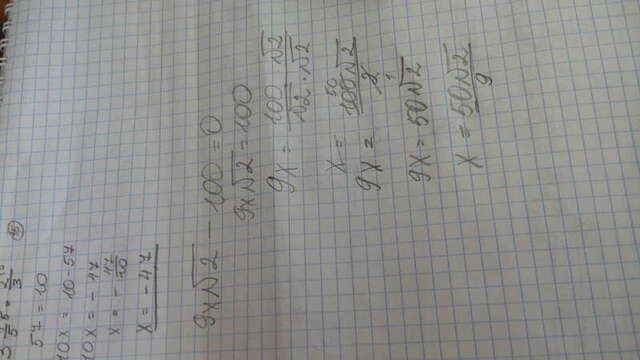 57 = 10
10x = 10 - 57
10x = - 47
x = - 47/10
x = - 47
9x√2 - 100 = 0
9x√2 = 100
9x = 100 √2 / √2 · √2
x =
9x = 100√2 / 2 50 1
9x = 50√2
x = 50√2 / 9